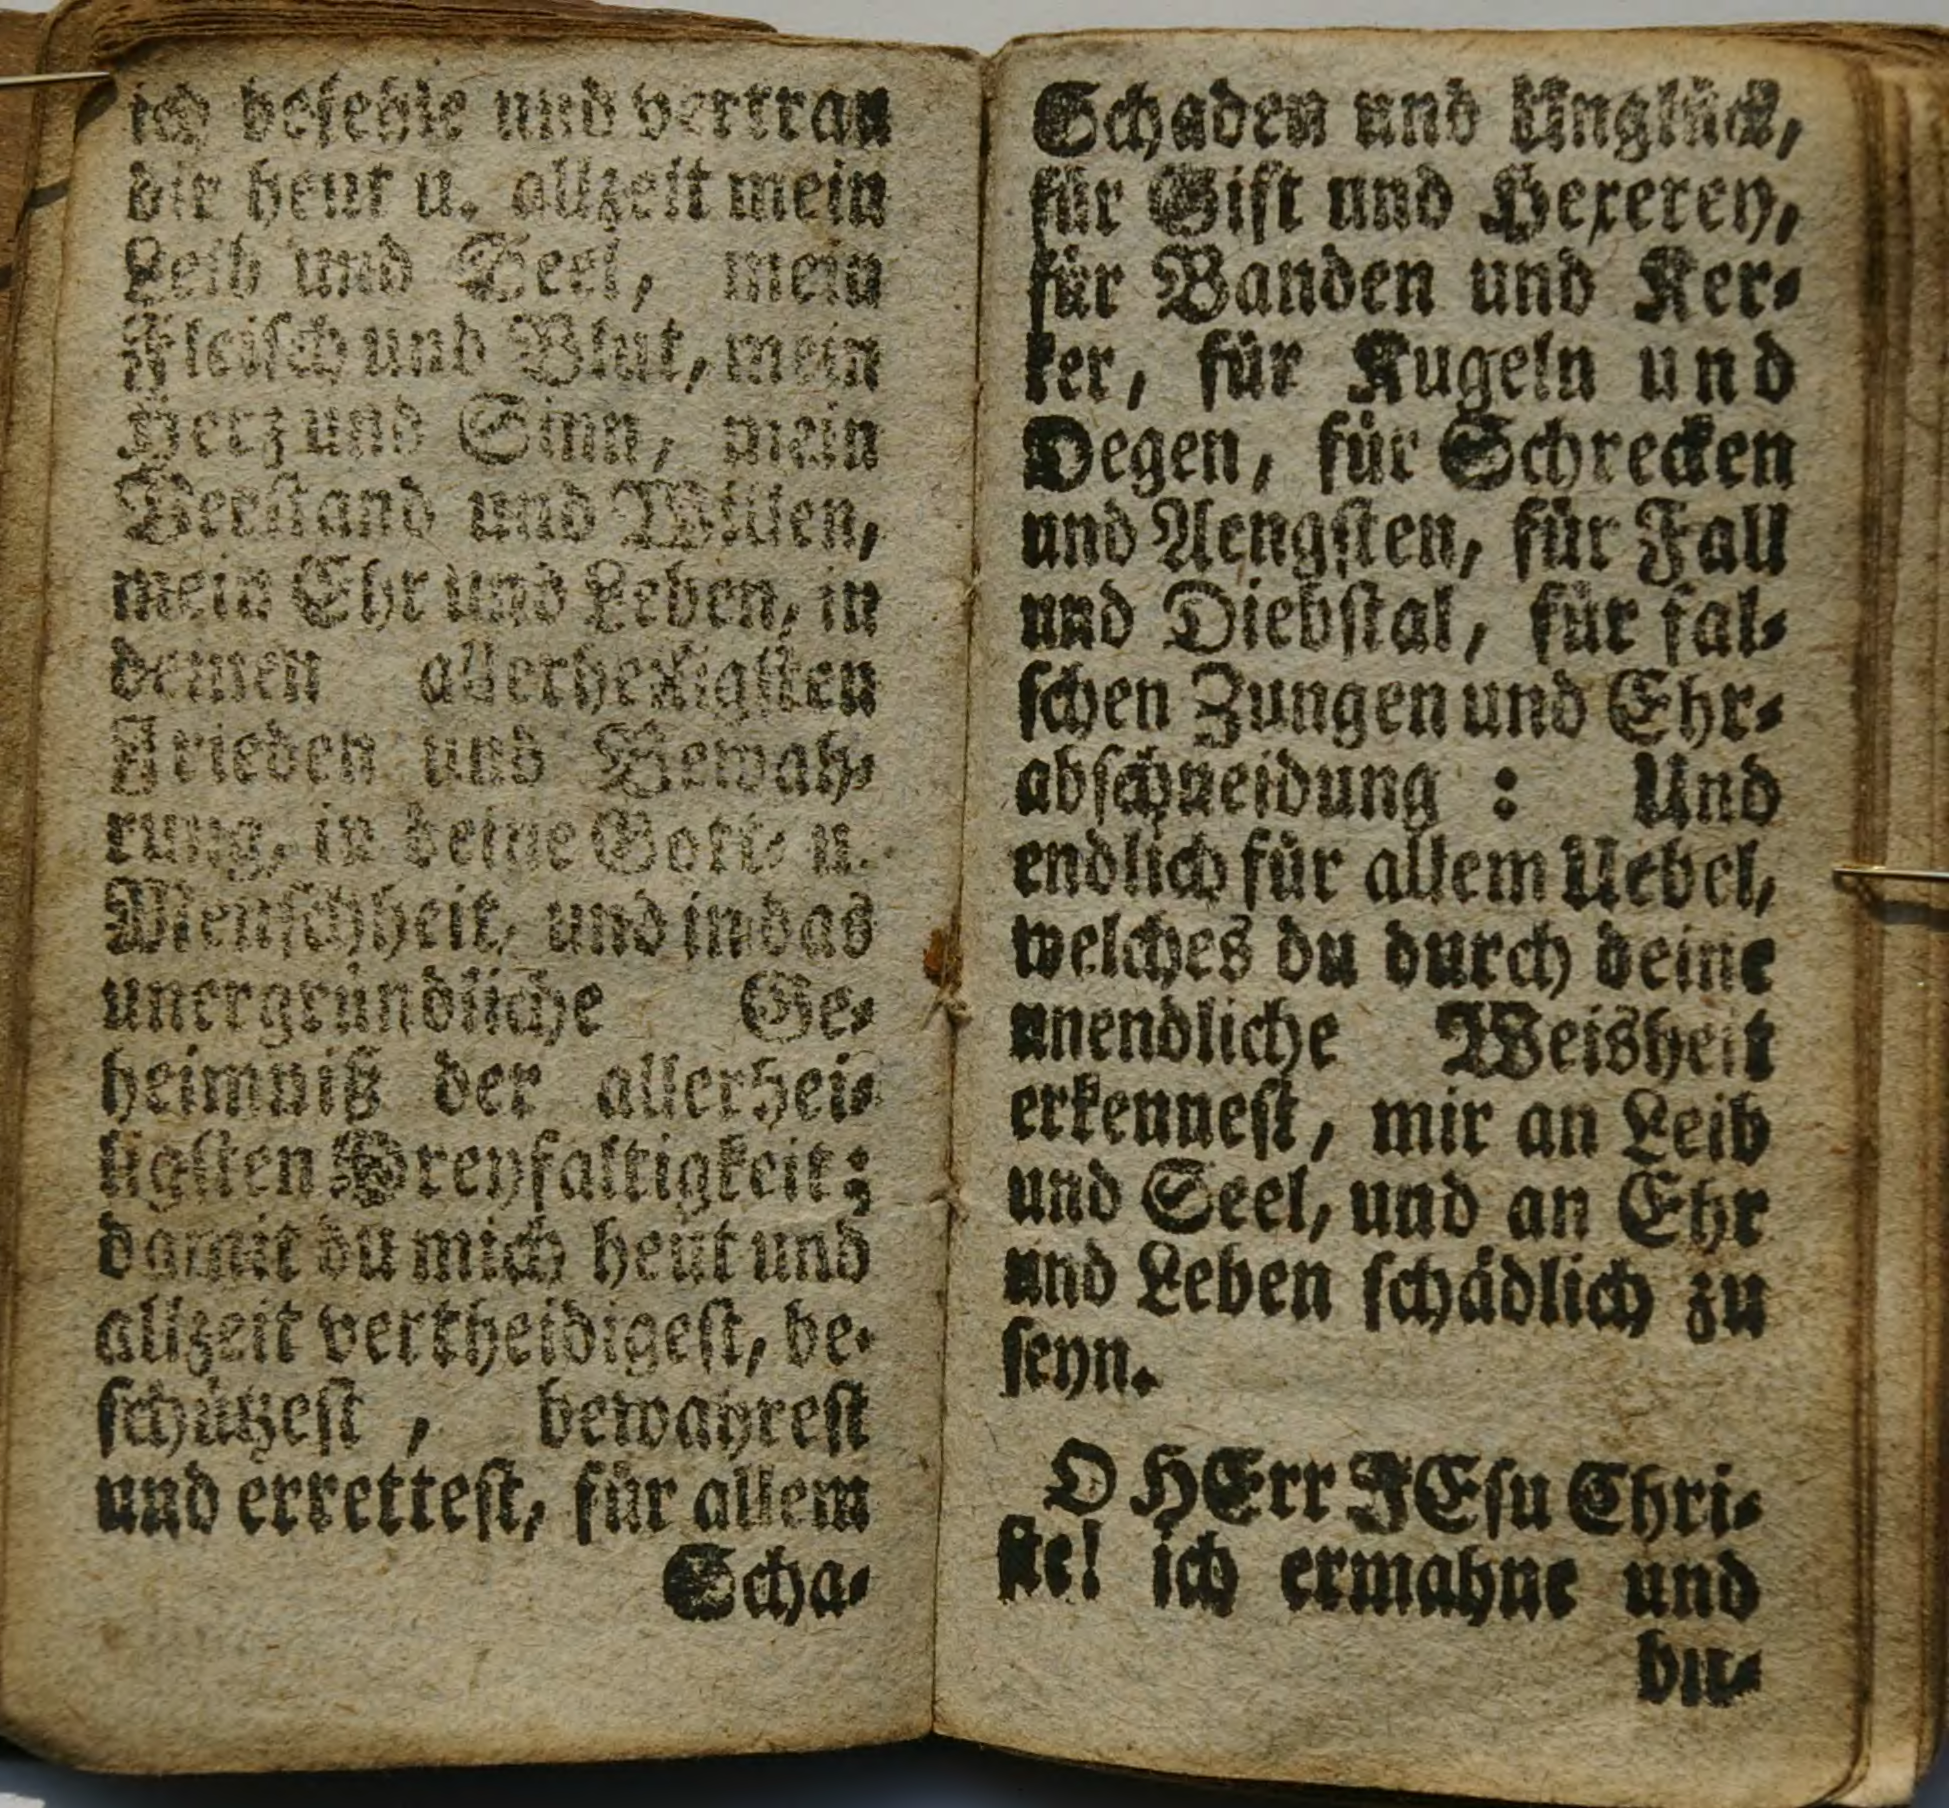 ich befehle und vertrau
dir heut u. allzeit mein
Leib und Seel, mein
Fleisch und Blut, mein
Herz und Sinn, mein
Verstand und Willen,
mein Ehr und Leben, in
deinen allerheiligsten
Frieden und Bewah-
rung, in deine Gott- u.
Menschheit, und in das
unergründliche Ge-
heimniß der allerhei-
ligsten Dreyfaltigkeit;
damit du mich heut und
allzeit vertheidigest, be-
schützest, bewahrest
und errettest, für allem
Scha-
Schaden und Unglück,
für Gift und Hexerey,
für Banden und Ker-
ker, für Kugeln und
Degen, für Schrecken
und Aengsten, für Fall
und Diebstal, für fal-
schen Zungen und Ehr-
abschneidung : Und
endlich für allem Uebel,
welches du durch deine
unendliche Weisheit
erkennest, mir an Leib
und Seel, und an Ehr
und Leben schädlich zu
seyn.
O HErr JEsu Chri-
ste! ich ermahne und
bit-